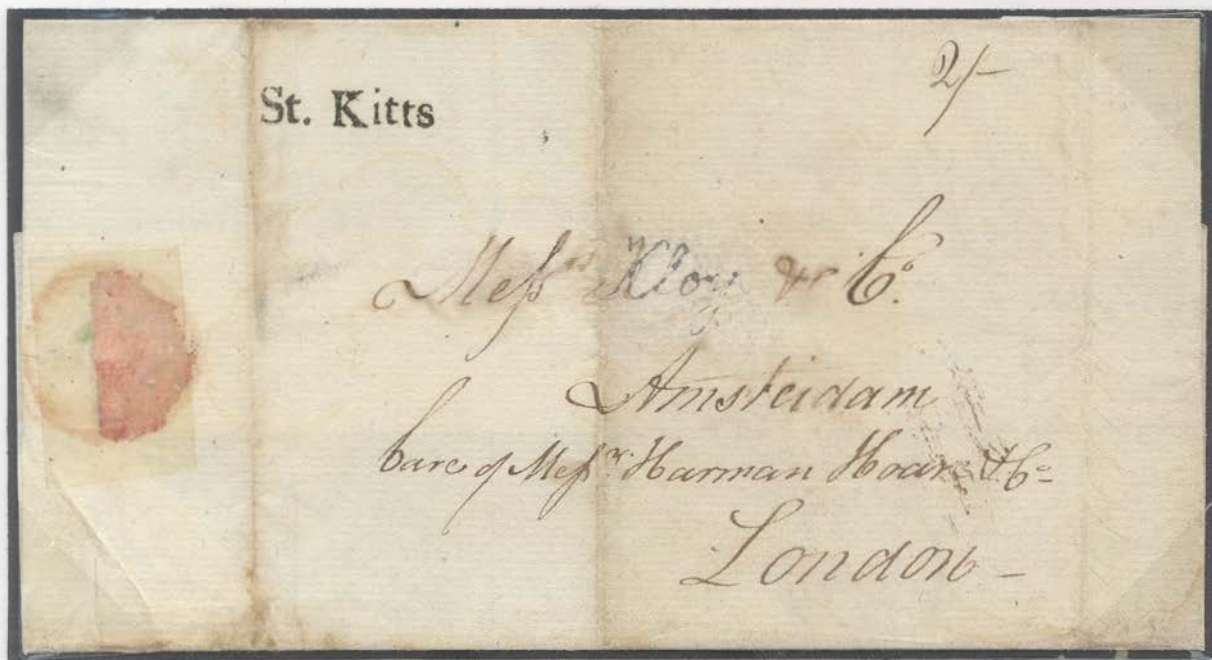 2/-
St. Kitts
Messrs & Co.
Amsterdam
Care of Messrs. Harman Hoare & Co
London –